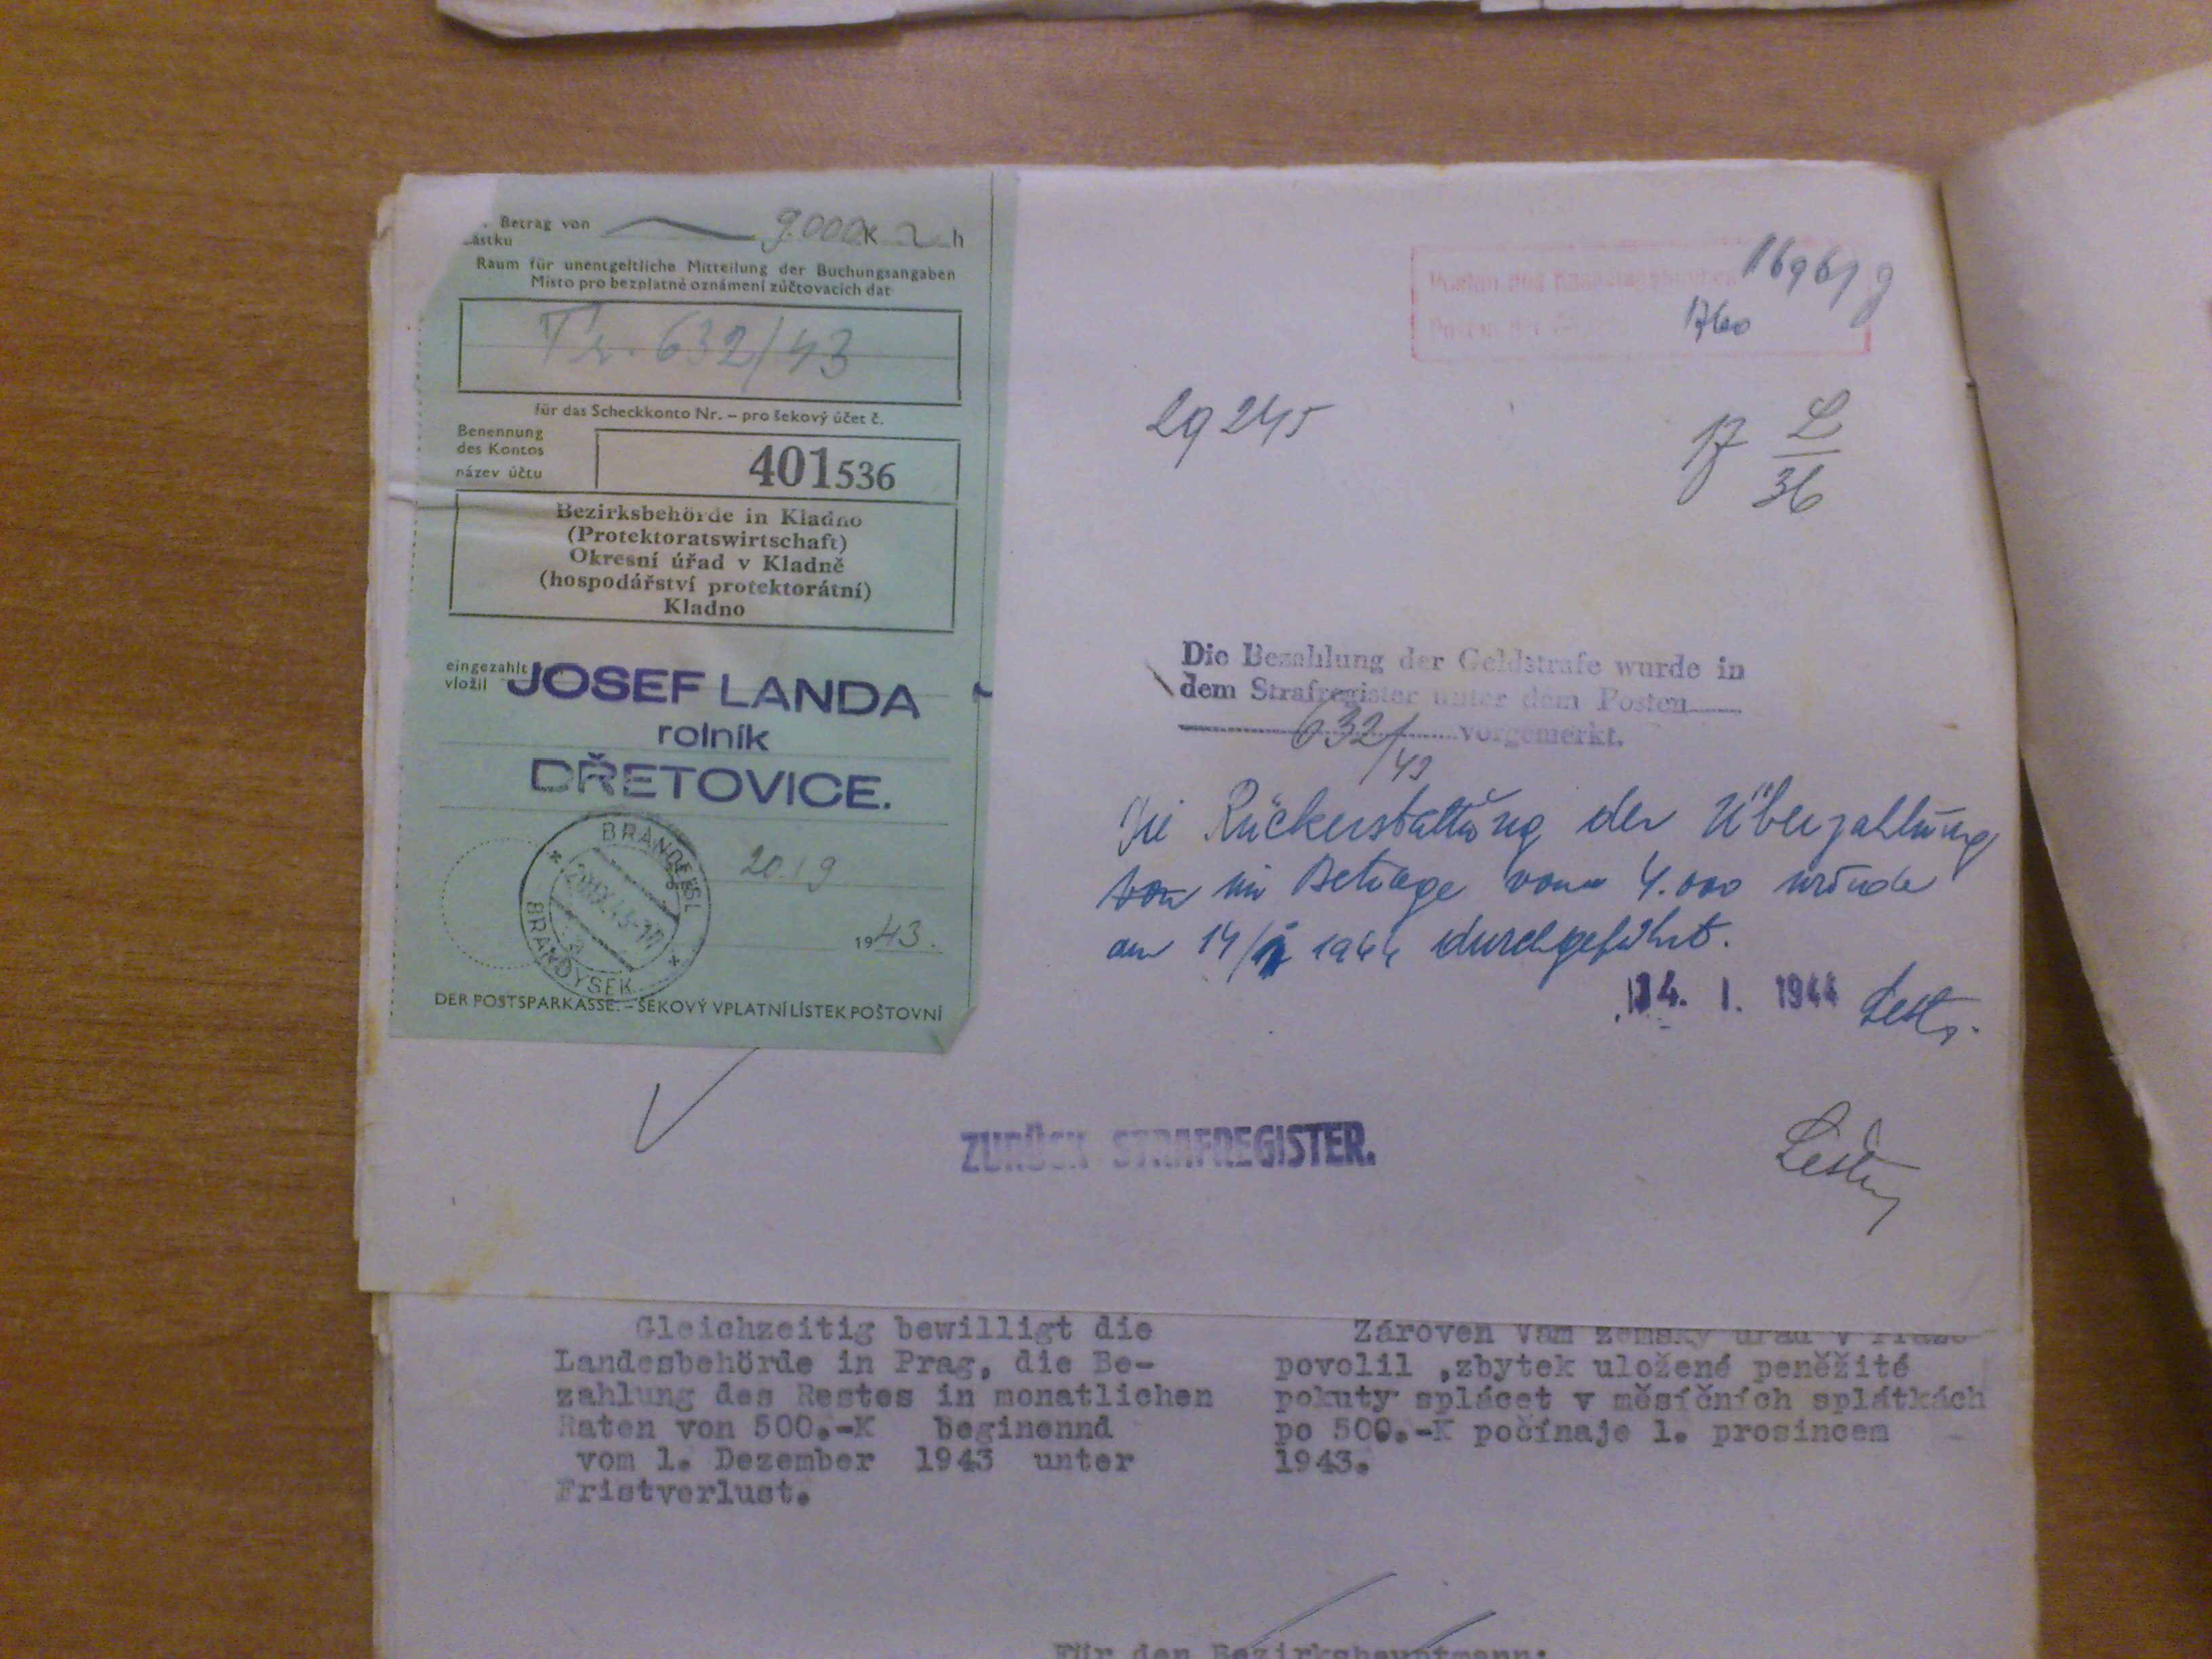 Betrag von 9.000 K h
ástku
Raum für unentgeltliche Mitteilung der Buchungsangaben
Místo pro bezplatné oznámení zúčtovacích dat
Tr. 632/43
für das Scheckkonto Nr. – pro šekový účet č.
Benennung
des Kontos
název účtu
401536
Bezirksbehörde in Kladno
(Protektoratswirtschaft)
Okresní úřad v Kladně
(hospodářství protektorátní)
Kladno
eingezahlt
vložil
JOSEF LANDA
rolník
DŘETOVICE.
BRANDEISL
BRANDÝSEK
20.19
1943.
DER POSTSPARKASSE. – ŠEKOVÝ VPLATNÍ LÍSTEK POŠTOVNÍ
Posten des
Posten der
1760
29245
17 L
36
Die Bezahlung der Geldstrafe wurde in
dem Strafregister unter dem Posten
632/43 vorgemerkt.
Die Rückerstattung der Überzahlung
von im Betrage von 4.000 wurde
am 14/1 1944 durchgeführt.
14. I. 1944
ZURÜCK STRAFREGISTER.
Gleichzeitig bewilligt die
Landesbehörde in Prag, die Be-
zahlung des Restes in monatlichen
Raten von 500.-K beginennd
vom 1. Dezember 1943 unter
Fristverlust.
Zároveň Vám zemský úřad v Praze
povolil ,zbytek uložené peněžité
pokuty splácet v měsíčních splátkách
po 500.-K počínaje 1. prosincem
1943.
Für den Bezirkshauptmann: